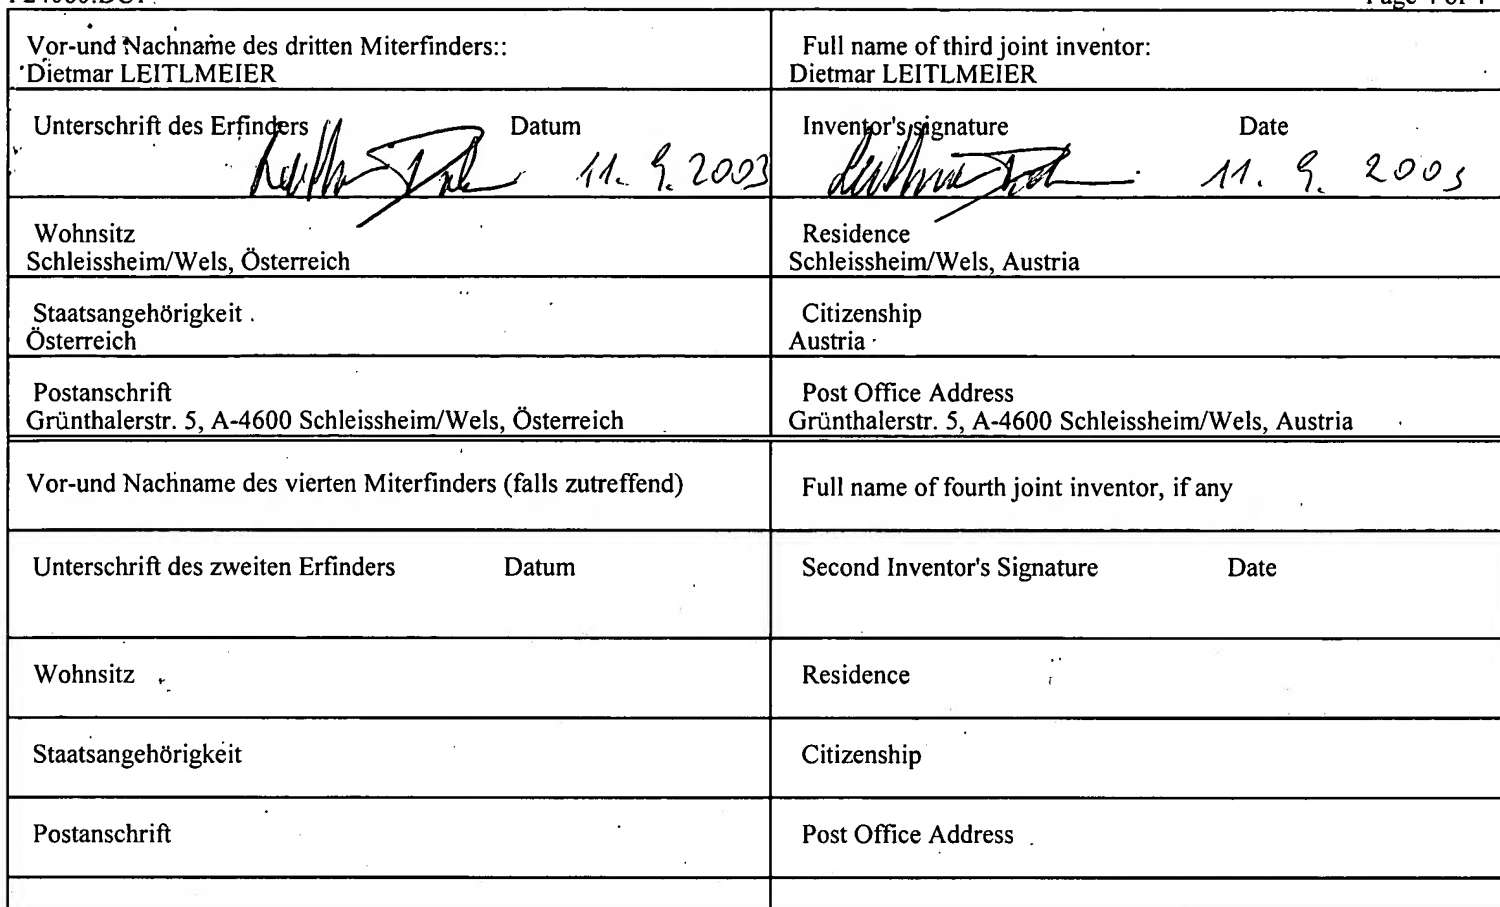 Vor-und Nachname des dritten Miterfinders::
Dietmar LEITLMEIER
Full name of third joint inventor:
Dietmar LEITLMEIER
Unterschrift des Erfinders Datum
11. 9. 2003
Inventor's signature Date
11. 9. 2003
Wohnsitz
Schleissheim/Wels, Österreich
Residence
Schleissheim/Wels, Austria
Staatsangehörigkeit
Österreich
Citizenship
Austria
Postanschrift
Grünthalerstr. 5, A-4600 Schleissheim/Wels, Österreich
Post Office Address
Grünthalerstr. 5, A-4600 Schleissheim/Wels, Austria
Vor-und Nachname des vierten Miterfinders (falls zutreffend)
Full name of fourth joint inventor, if any
Unterschrift des zweiten Erfinders Datum
Second Inventor's Signature Date
Wohnsitz
Residence
Staatsangehörigkeit
Citizenship
Postanschrift
Post Office Address